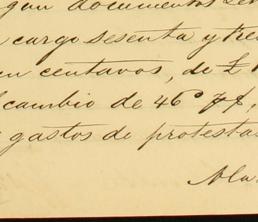 gan documentos
cargo sesenta y tre
en centavos, de £
cambio de 46°
gastos de protesta